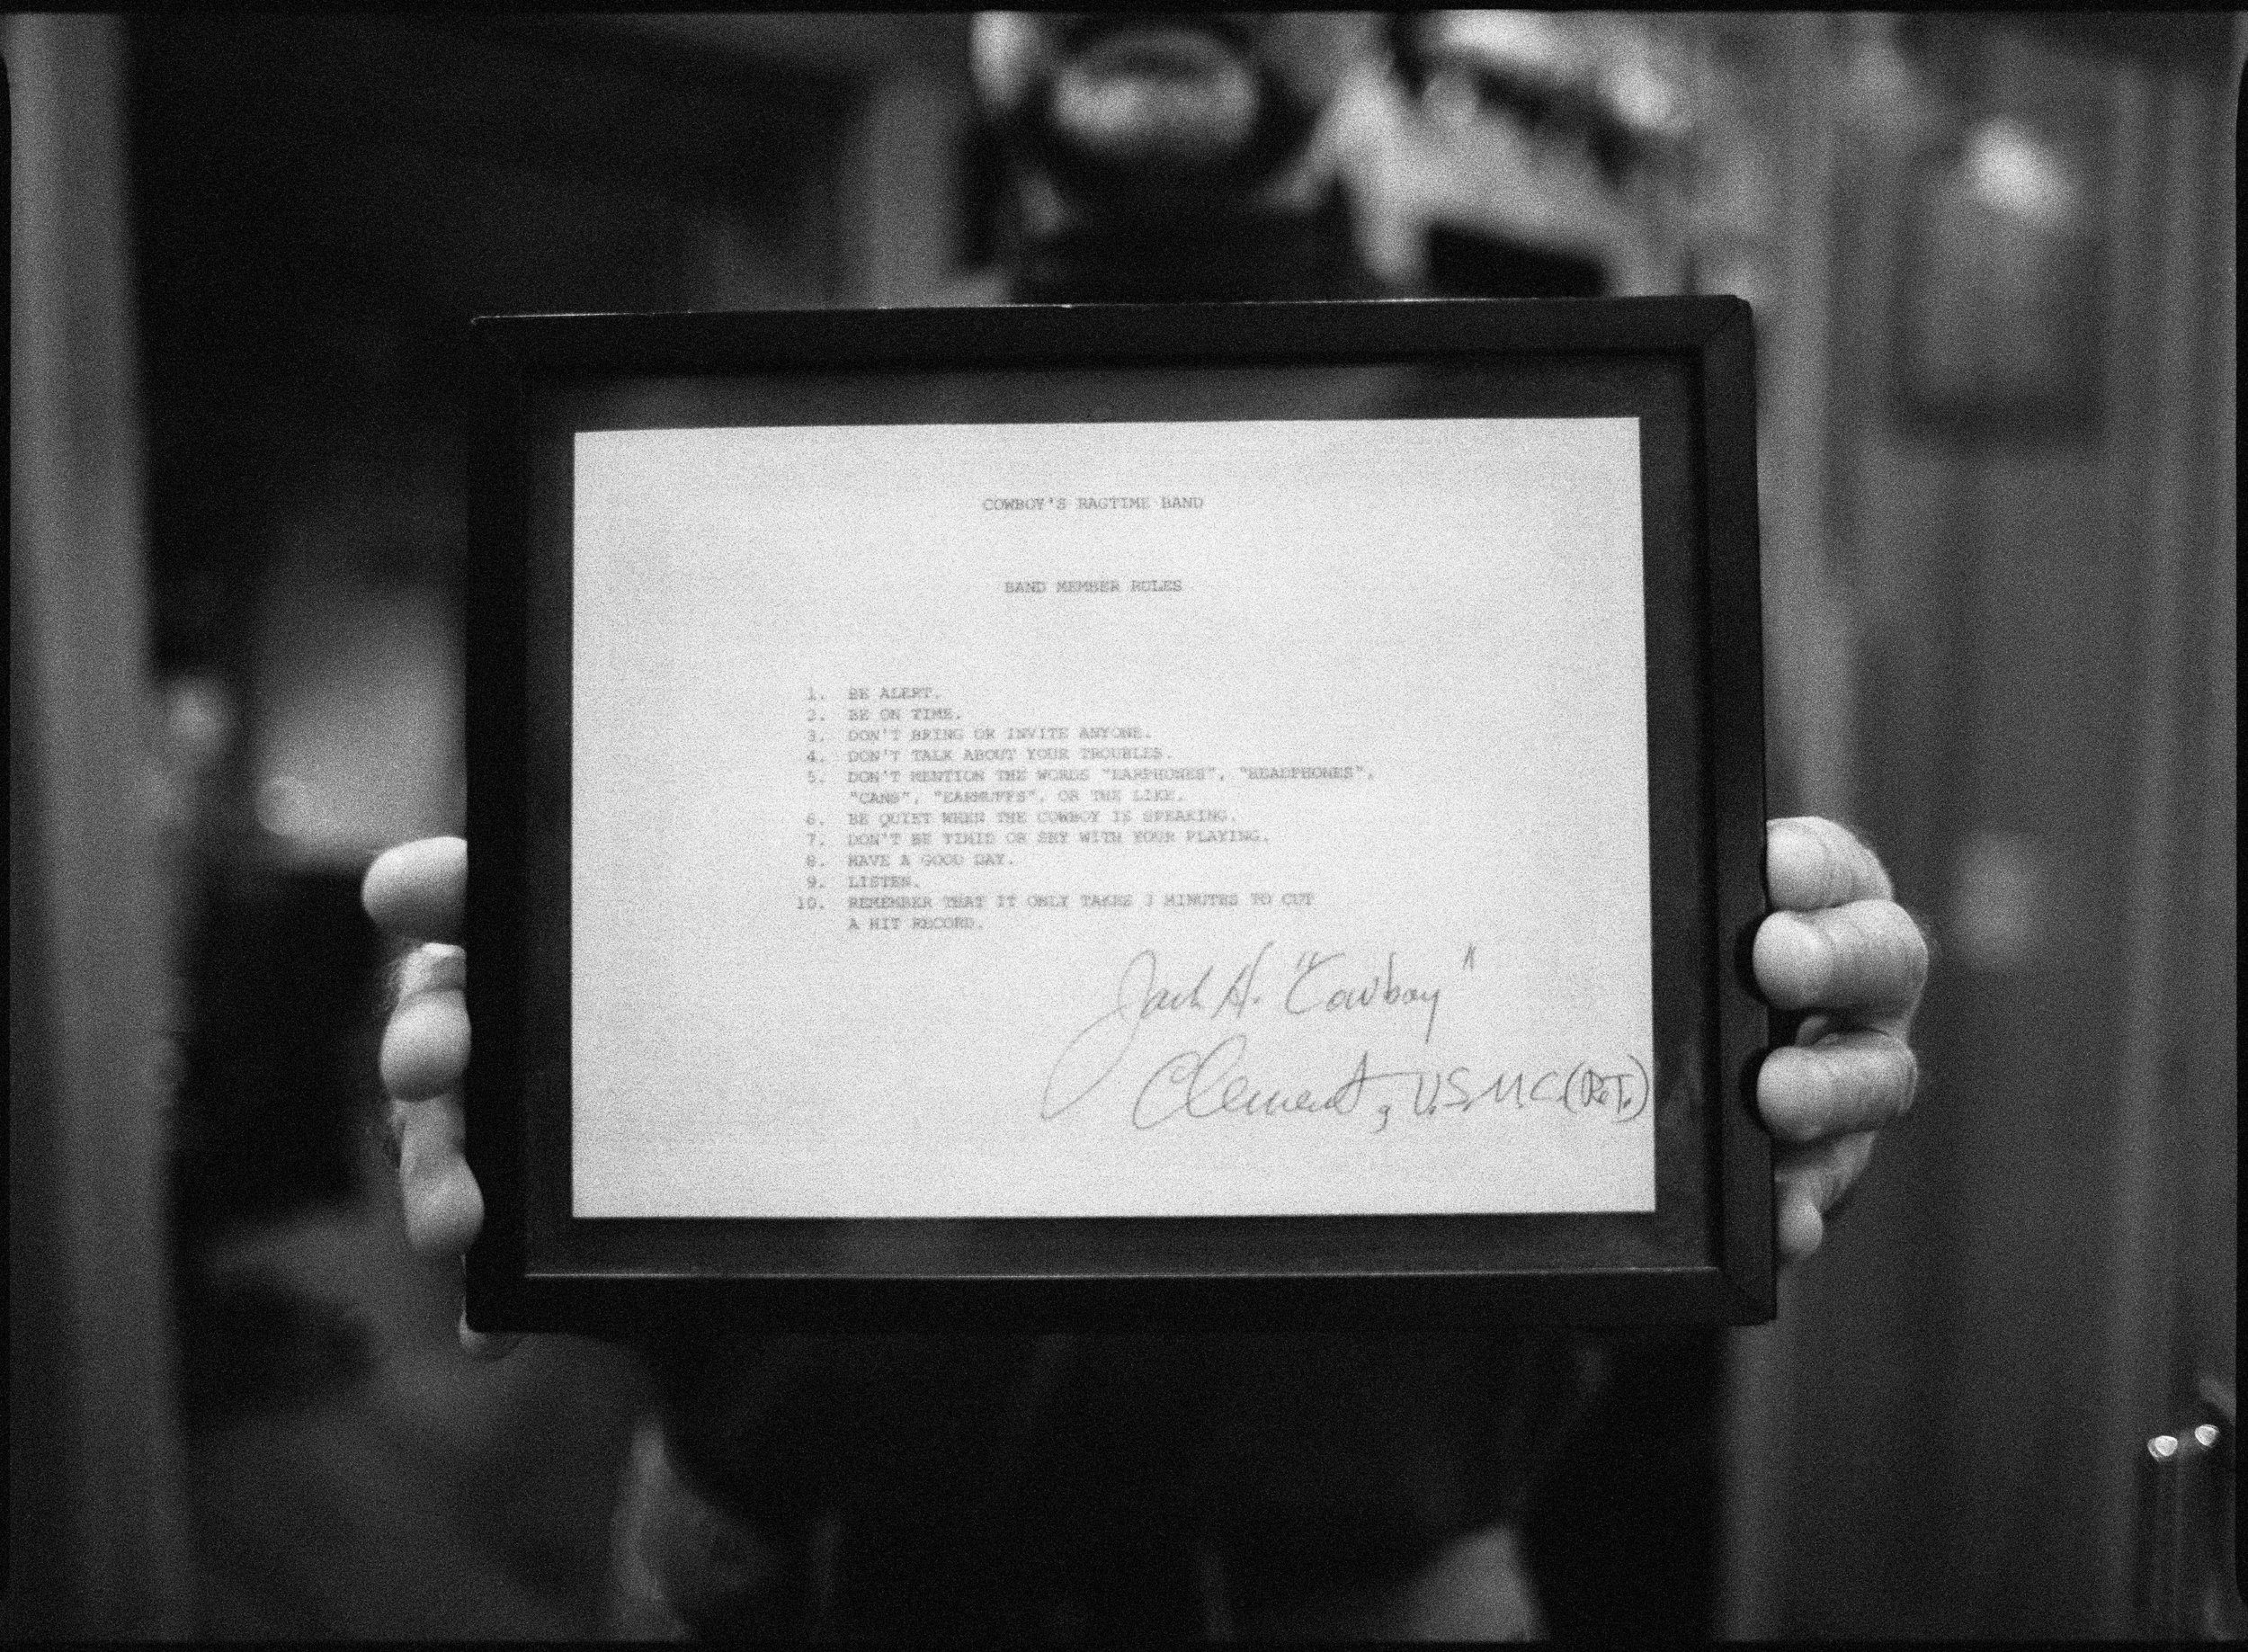 COWBOY'S RAGTIME BAND
BAND MEMBER RULES
1. BE ALERT.
2. BE ON TIME.
3. DON'T BRING OR INVITE ANYONE.
4. DON'T TALK ABOUT YOUR TROUBLES.
5. DON'T MENTION THE WORDS "EARPHONES", "HEADPHONES",
"CANS", "EARMUFFS", OR THE LIKE.
6. BE QUIET WHEN THE COWBOY IS SPEAKING.
7. DON'T BE TIMID OR SHY WITH YOUR PLAYING.
8. HAVE A GOOD DAY.
9. LISTEN.
10. REMEMBER THAT IT ONLY TAKES 3 MINUTES TO CUT
A HIT RECORD.
Jack H. "Cowboy"
Clement, U.S.M.C. (Ret.)